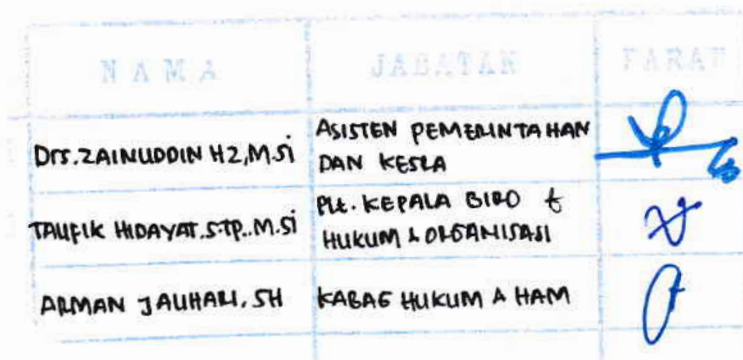 NAMA JABATAN PARAF
Drs. ZAINUDDIN HZ, M.Si ASISTEN PEMERINTAHAN
DAN KESRA
TAUFIK HIDAYAT. S.TP.. M.Si Plt. KEPALA BIRO
HUKUM & ORGANISASI
ARMAN JAUHARI. SH KABAG HUKUM & HAM